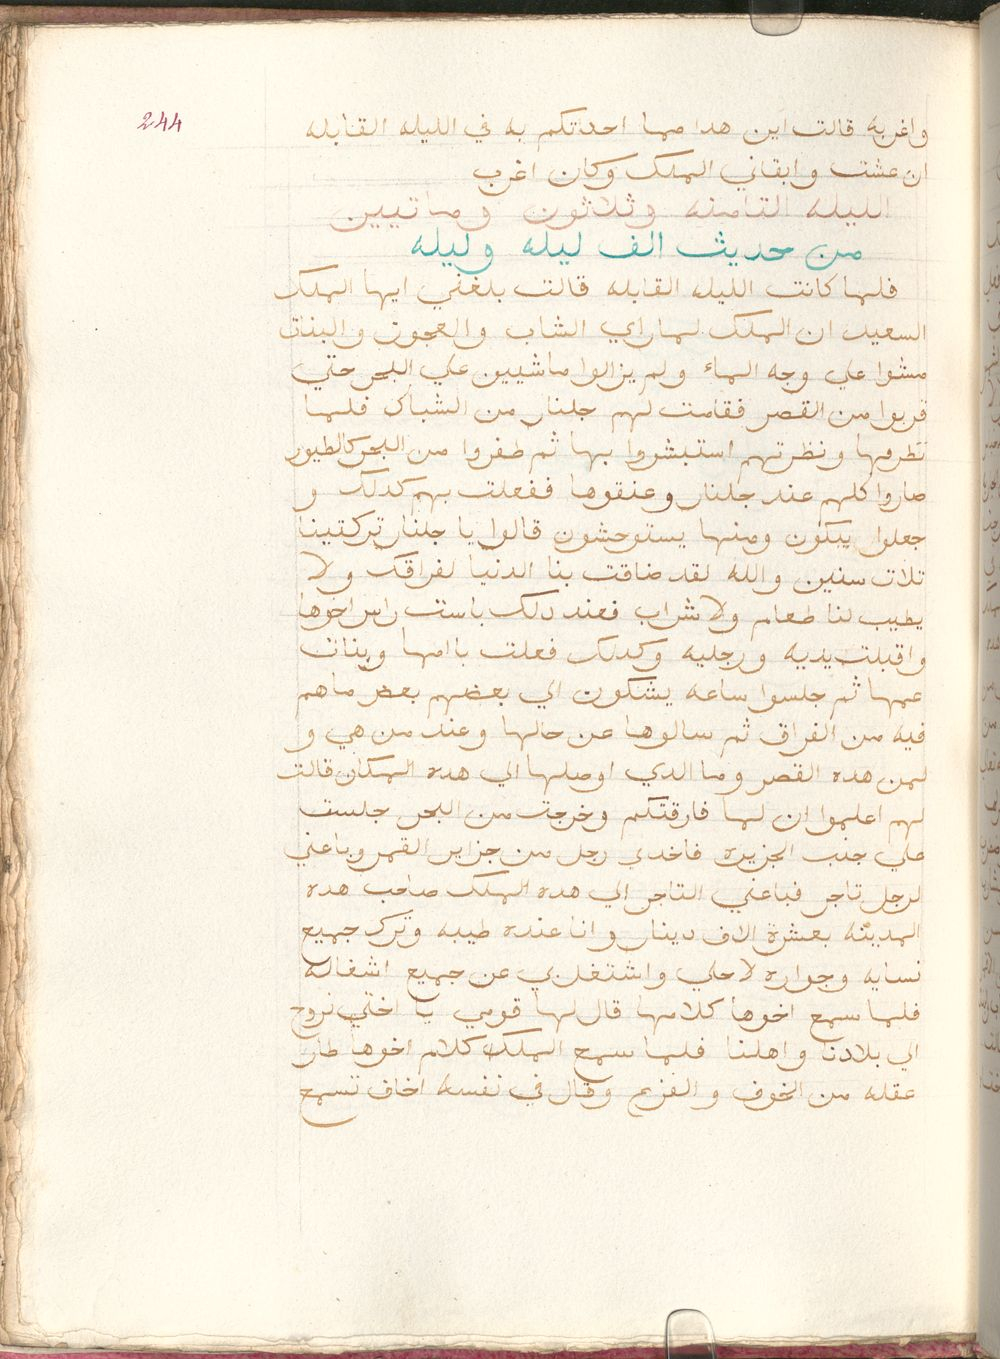 244
واغربه قالت اين هدا مما احدتكم به في الليله القابله
ان عشت وابقاني الملك وكان اغرب
الليله التامنه وثلاثون وماتيين
من حديث الف ليله وليله
فلما كانت الليله القابله قالت بلغني ايها الملك
السعيد ان الملك لما راي الشاب والعجوز والبنات
مشوا علي وجه الماء ولم يزالوا ماشيين علي البحر حتي
قربوا من القصر فقامت لهم جلنار من الشباك فلما
نظروها ونظرتهم استبشروا بها ثم طفروا من البحر كالطيور
صاروا كلهم عند جلنار وعنقوها ففعلت بهم كدلك و
جعلوا يبكون ومنها يستوحشون قالوا يا جلنار تركتينا
تلات سنين والله لقد ضاقت بنا الدنيا لفراقك ولا
يطيب لنا طعام ولا شراب فعند دلك باست راس اخوها
واقبلت يديه ورجليه وكدلك فعلت باامها وبنات
عمها ثم جلسوا ساعه يشكون الي بعضهم بعض ماهم
فيه من الفراق ثم سالوها عن حالها وعند من هي و
لمن هده القصر وما الدي اوصلها الي هده المكان قالت
لهم اعلموا ان لما فارقتكم وخرجت من البحر جلست
علي جنب الجزيره فاخدني رجل من جزاير القمر وباعني
لرجل تاجر فباعني التاجر الي هده الملك صاحب هده
المدينه بعشرة الاف دينار وانا عنده طيبه وترك جميع
نسايه وجواره لاجلي واشتغل بي عن جميع اشغاله
فلما سمع اخوها كلامها قال لها قومي يا اختي نروح
الي بلادنا واهلنا فلما سمع الملك كلام اخوها طار
عقله من الخوف والفزع وقال في نفسه اخاف تسمع